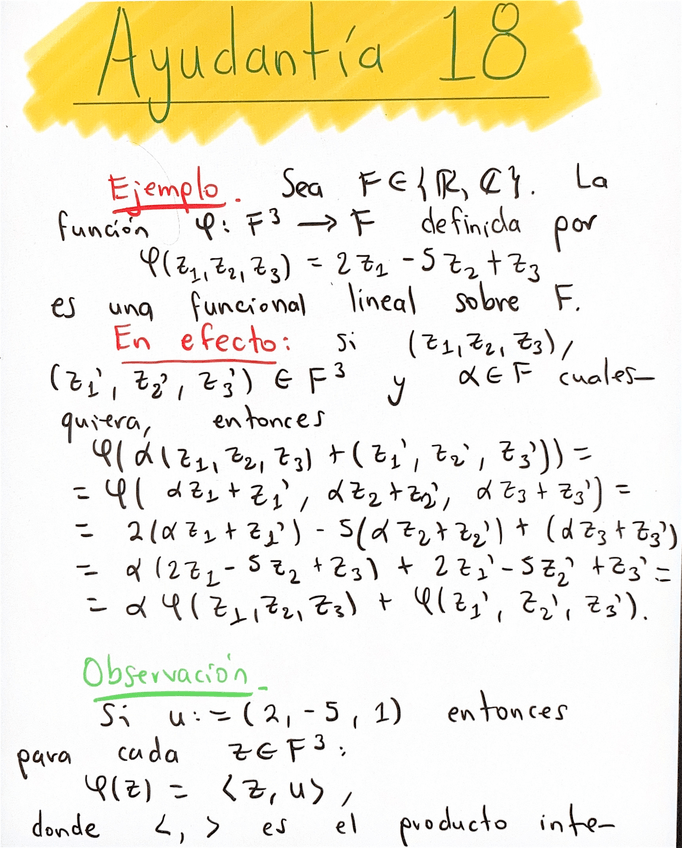 Ayudantía 18
Ejemplo. Sea F∈{ℝ, ℂ}. La
función φ: F³ → F definida por
φ(z₁, z₂, z₃) = 2z₁ - 5z₂ + z₃
es una funcional lineal sobre F.
En efecto: si (z₁, z₂, z₃),
(z₁', z₂', z₃') ∈ F³ y α∈F cuales-
quiera, entonces
φ(α(z₁, z₂, z₃) + (z₁', z₂', z₃')) =
= φ(αz₁ + z₁', αz₂ + z₂', αz₃ + z₃') =
= 2(αz₁ + z₁') - 5(αz₂ + z₂') + (αz₃ + z₃')
= α(2z₁ - 5z₂ + z₃) + 2z₁' - 5z₂' + z₃' =
= αφ(z₁, z₂, z₃) + φ(z₁', z₂', z₃').
Observación.
Si u := (2, -5, 1) entonces
para cada z∈F³:
φ(z) = <z, u>,
donde <, > es el producto inte-